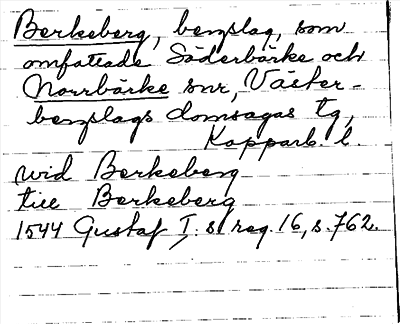 Berkeberg, bergslag, som
omfattade Söderbärke och
Norrbärke snr, Väster-
bergslags domsagas tg,
Kopparb. l.
wid Berkeberg
till Berkeberg
1544 Gustaf I:s reg. 16, s. 762.